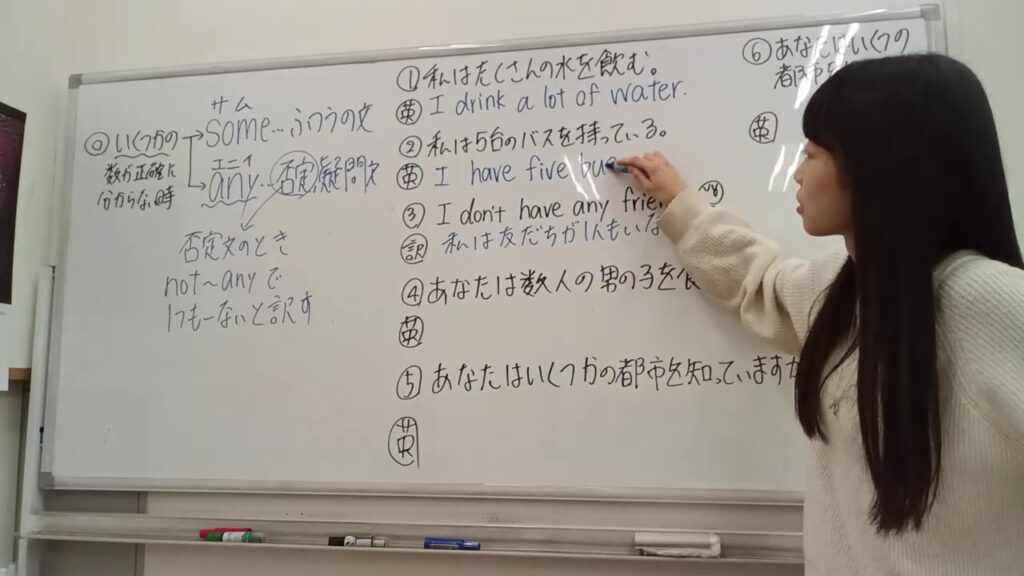 サム
◎いくつかの → some…ふつうの文
数が正確に
分からない時
エニイ
any…否定,疑問文
否定文のとき
not〜anyで
1つも〜ないと訳す
① 私はたくさんの水を飲む。
英 I drink a lot of water.
② 私は5台のバスを持っている。
英 I have five bus
③ I don't have any frie
訳 私は友だちが1人もいな
④ あなたは数人の男の子を
英
⑤ あなたはいくつかの都市を知っていますか
英
⑥ あなたはいくつの
都市
英